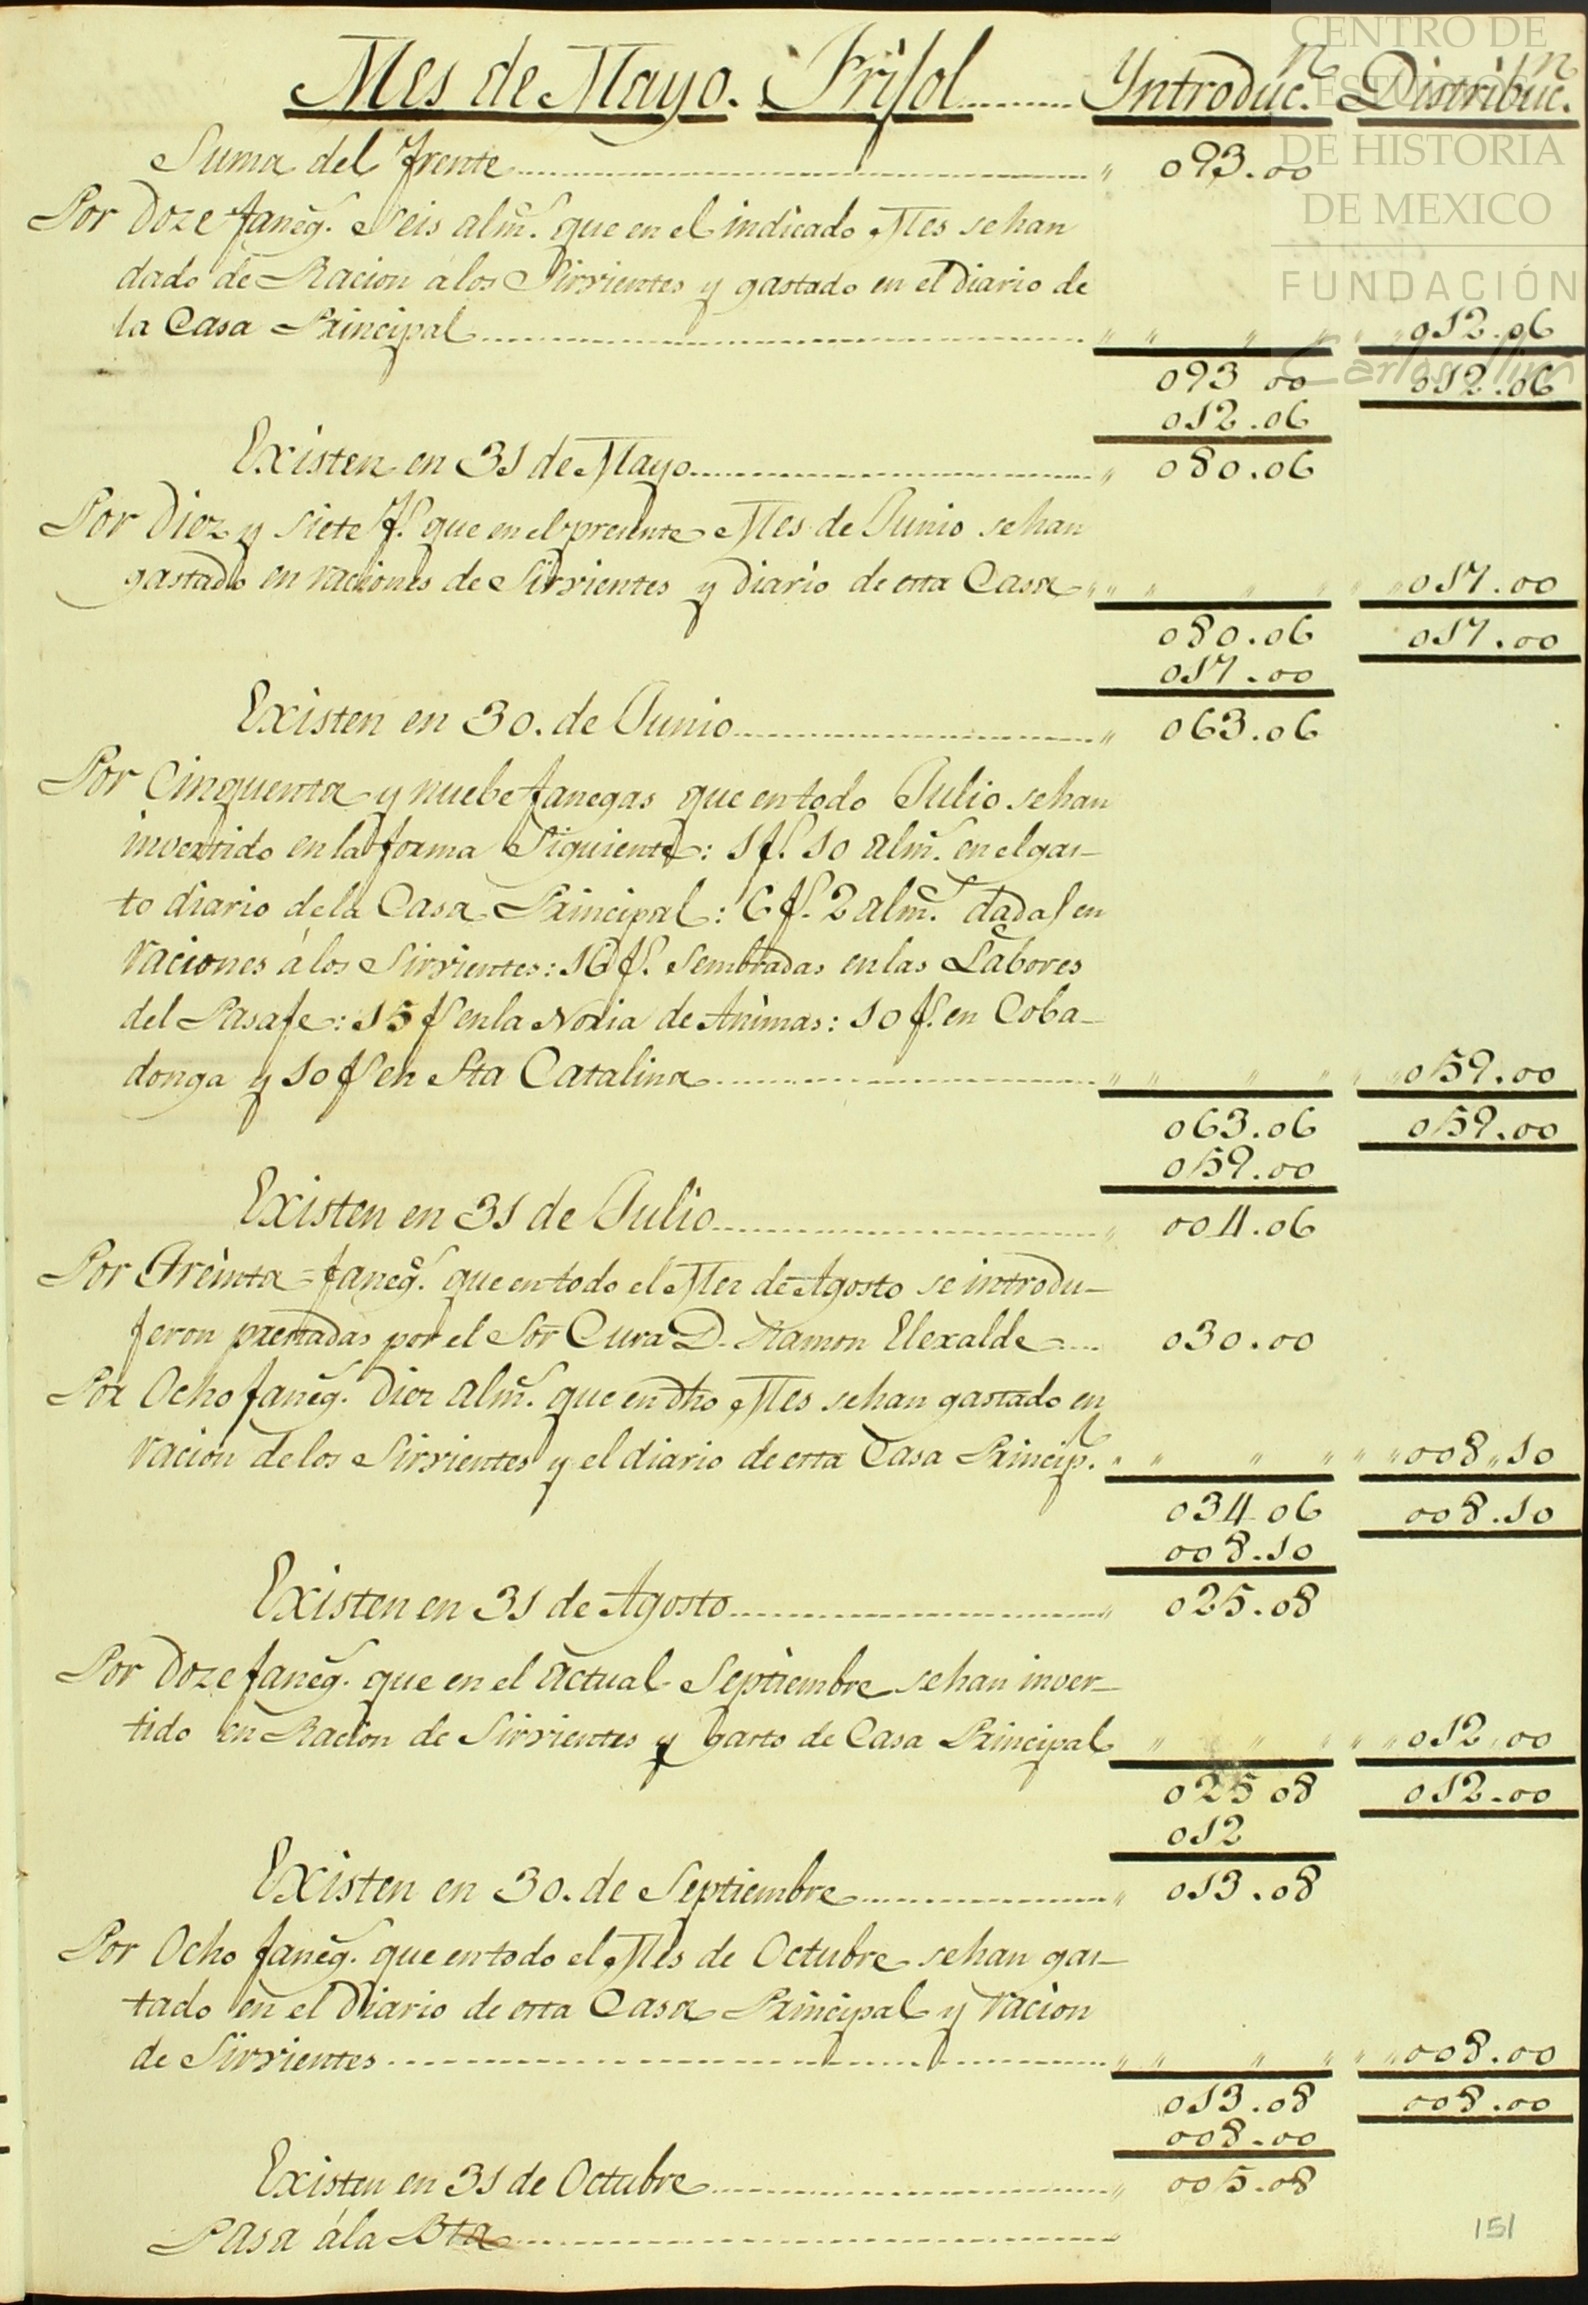 CENTRO DE
ESTUDIOS
DE HISTORIA
DE MEXICO
FUNDACIÓN
Carlos Slim
Mes de Mayo. Frisol Yntroduc.n Distribuc.n
Suma del frente " 093.00
Por Doze faneg.s Seis alm.s que en el indicado Mes se han
dado de Racion á los Sirvientes y gastado en el Diario de
la Casa Principal " " " " " " 012.06
093 00 012.06
012.06
Existen en 31 de Mayo " 080.06
Por Diez y Siete f.s que en el presente Mes de Junio se han
gastado en raciones de Sirvientes y diario de esta Casa " " " " " " " 017.00
080.06 017.00
017.00
Existen en 30. de Junio " 063.06
Por Cinquenta y nuebe fanegas que en todo Julio se han
invertido en la forma Siguiente: 1 f.s 10 alm.s en el gas-
to diario de la Casa Principal: 6 f.s 2 alm.s dadas en
raciones á los Sirvientes: 16 f.s Sembradas en las Labores
del Pasaje: 15 f.s en la Noria de Animas: 10 f.s en Coba-
donga y 10 f.s en Sta Catalina " " " " " " 059.00
063.06 059.00
059.00
Existen en 31 de Julio " 004.06
Por Treinta faneg.s que en todo el Mes de Agosto se introdu-
jeron prestadas por el Sor Cura D. Ramon Elexalde 030.00
Por Ocho faneg.s Diez alm.s que en dho Mes se han gastado en
racion de los Sirvientes y el diario de esta Casa Princip.l " " " " " " 008,,10
034 06 008.10
008.10
Existen en 31 de Agosto " 025.08
Por Doze faneg.s que en el actual Septiembre se han inver-
tido en Racion de Sirvientes y gasto de Casa Principal " " " " " 012.00
025 08 012.00
012
Existen en 30. de Septiembre " 013.08
Por Ocho faneg.s que en todo el Mes de Octubre se han gas-
tado en el Diario de esta Casa Principal y racion
de Sirvientes " " " " " " 008.00
013.08 008.00
008.00
Existen en 31 de Octubre " 005.08
Pasa á la Bta "
151